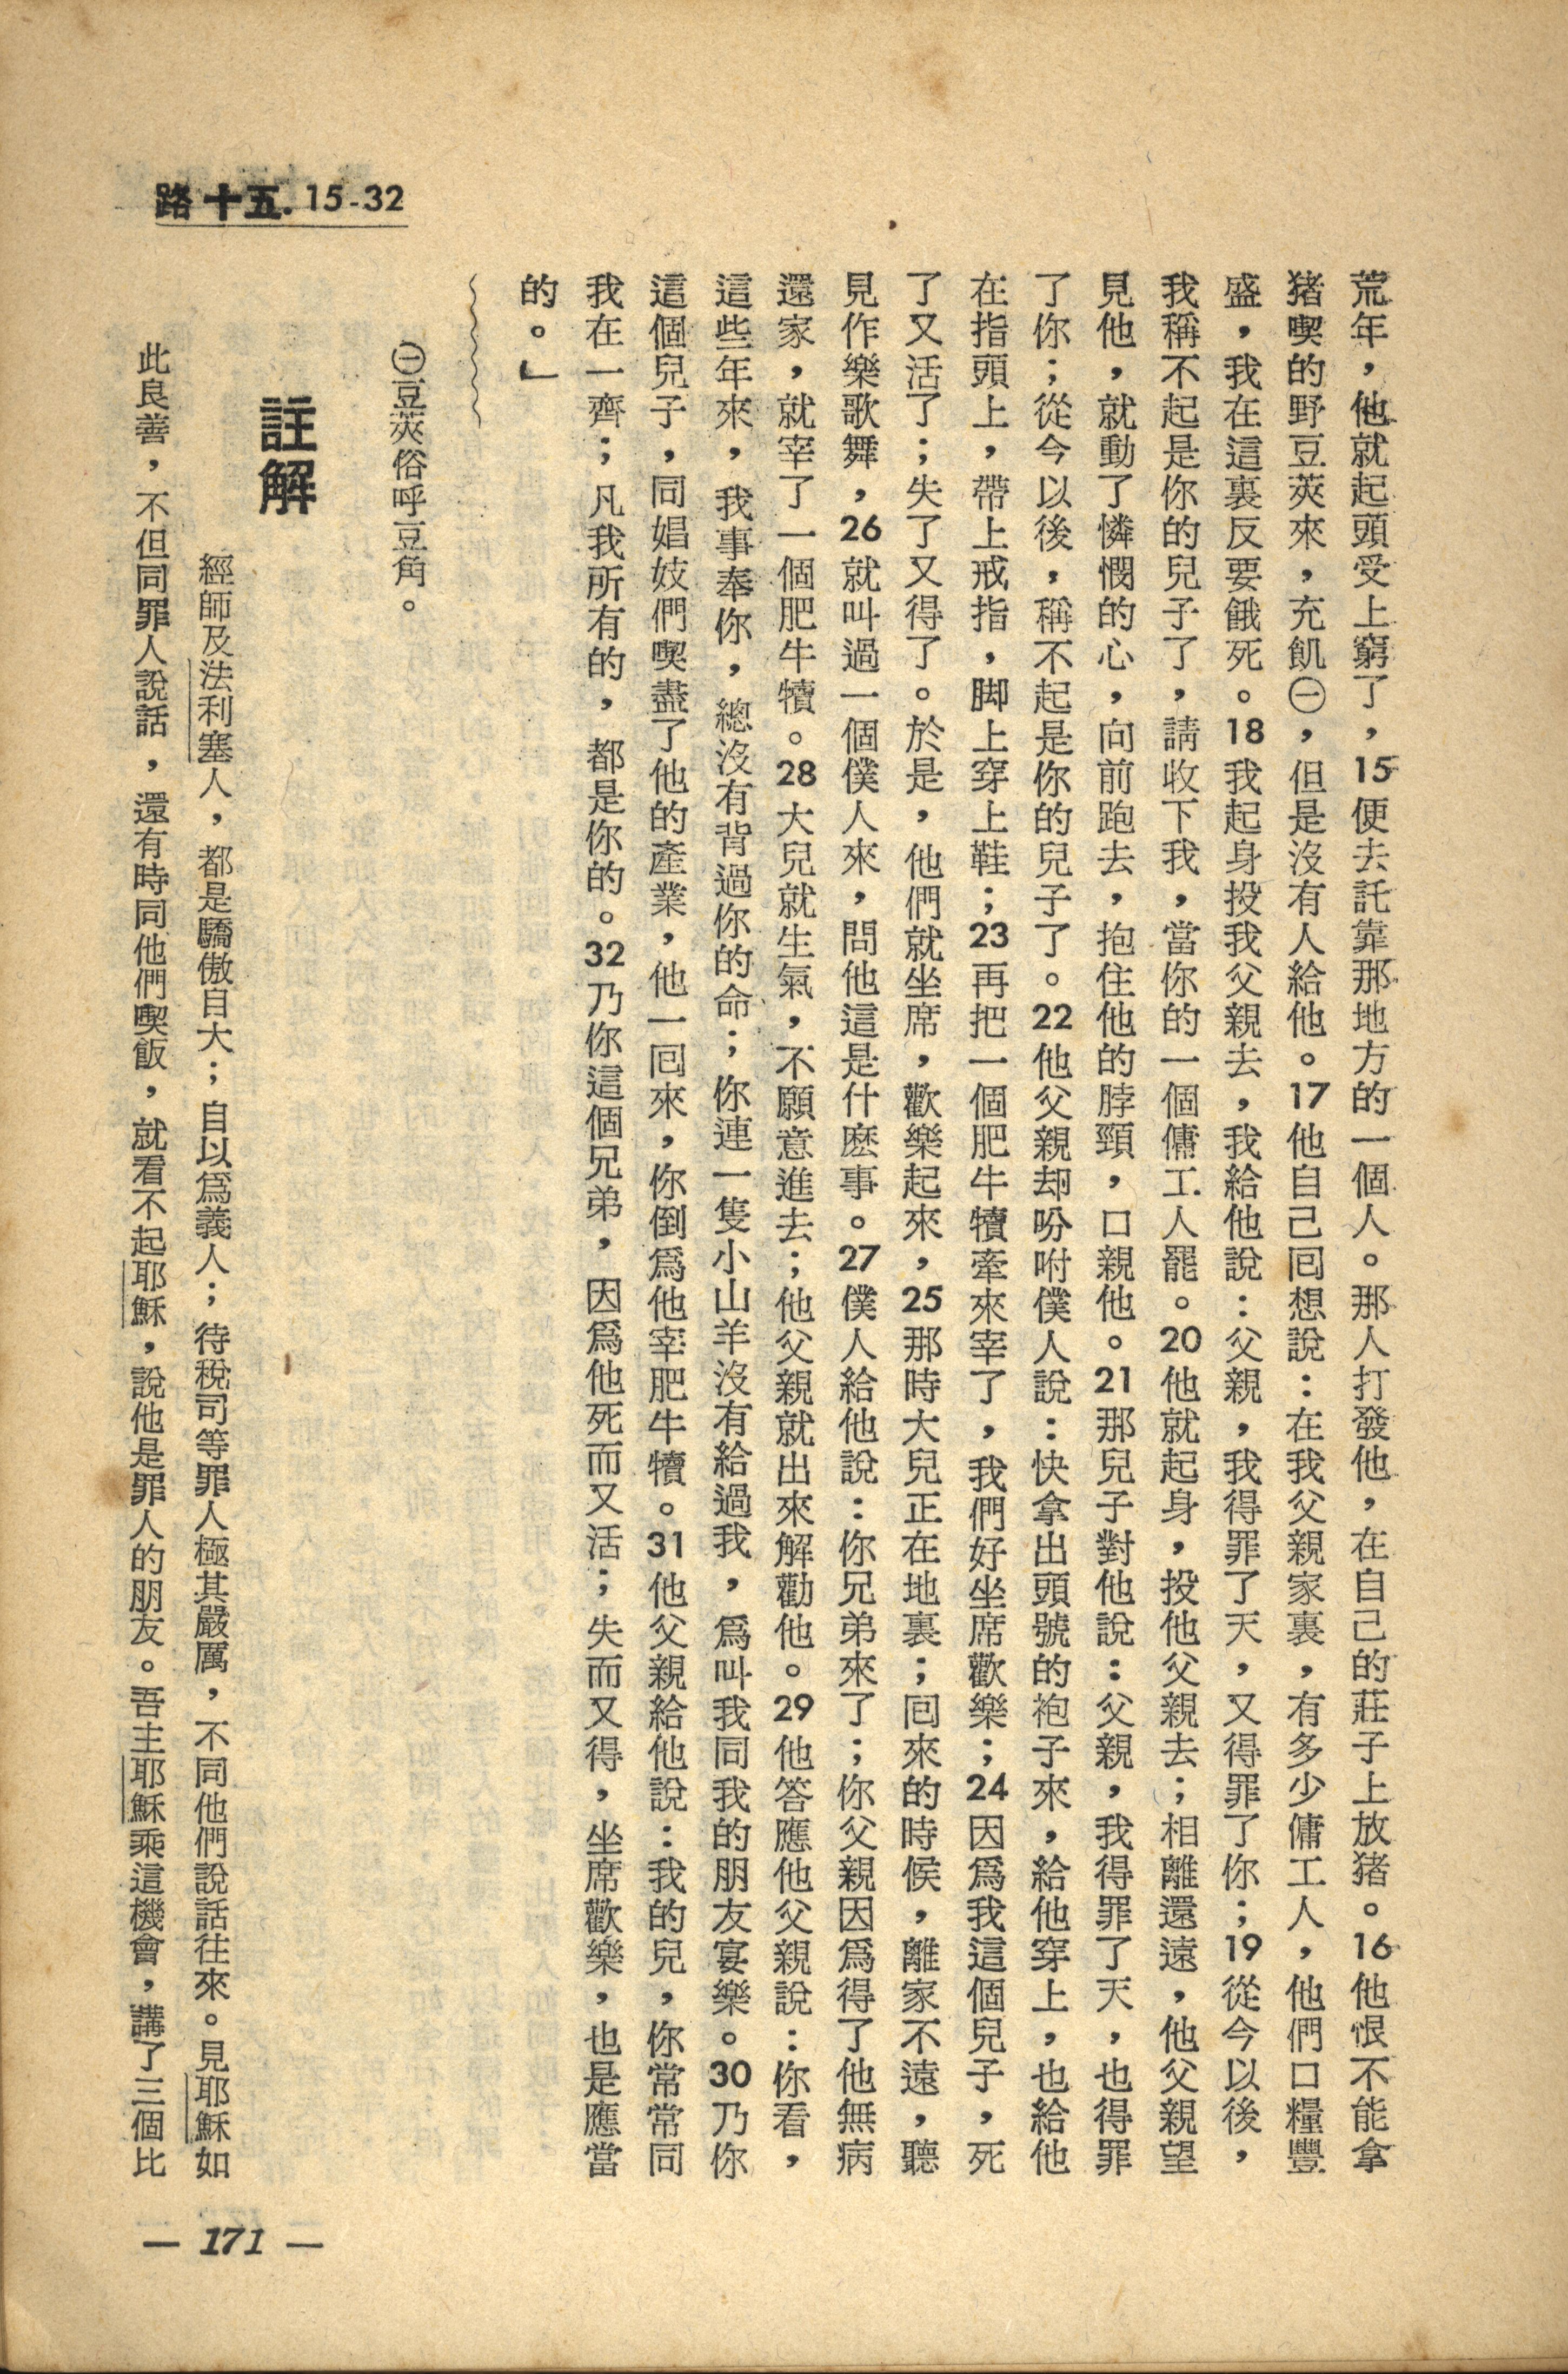 路十五. 15-32
荒年，他就起頭受上窮了，15便去託靠那地方的一個人。那人打發他，在自己的莊子上放猪。16他恨不能拿
猪喫的野豆莢來，充飢㊀，但是沒有人給他。17他自己囘想說：在我父親家裏，有多少傭工人，他們口糧豐
盛，我在這裏反要餓死。18我起身投我父親去，我給他說：父親，我得罪了天，又得罪了你；19從今以後，
我稱不起是你的兒子了，請收下我，當你的一個傭工人罷。20他就起身，投他父親去；相離還遠，他父親望
見他，就動了憐憫的心，向前跑去，抱住他的脖頸，口親他。21那兒子對他說：父親，我得罪了天，也得罪
了你；從今以後，稱不起是你的兒子了。22他父親却吩咐僕人說：快拿出頭號的袍子來，給他穿上，也給他
在指頭上，帶上戒指，脚上穿上鞋；23再把一個肥牛犢牽來宰了，我們好坐席歡樂；24因爲我這個兒子，死
了又活了；失了又得了。於是，他們就坐席，歡樂起來，25那時大兒正在地裏；囘來的時候，離家不遠，聽
見作樂歌舞，26就叫過一個僕人來，問他這是什麽事。27僕人給他說：你兄弟來了；你父親因爲得了他無病
還家，就宰了一個肥牛犢。28大兒就生氣，不願意進去；他父親就出來解勸他。29他答應他父親說：你看，
這些年來，我事奉你，總沒有背過你的命；你連一隻小山羊沒有給過我，爲叫我同我的朋友宴樂。30乃你
這個兒子，同娼妓們喫盡了他的產業，他一囘來，你倒爲他宰肥牛犢。31他父親給他說：我的兒，你常常同
我在一齊；凡我所有的，都是你的。32乃你這個兄弟，因爲他死而又活；失而又得，坐席歡樂，也是應當
的。」
㊀豆莢俗呼豆角。
註解
經師及法利塞人，都是驕傲自大；自以爲義人；待稅司等罪人極其嚴厲，不同他們說話往來。見耶穌如
此良善，不但同罪人說話，還有時同他們喫飯，就看不起耶穌，說他是罪人的朋友。吾主耶穌乘這機會，講了三個比
— 171 —